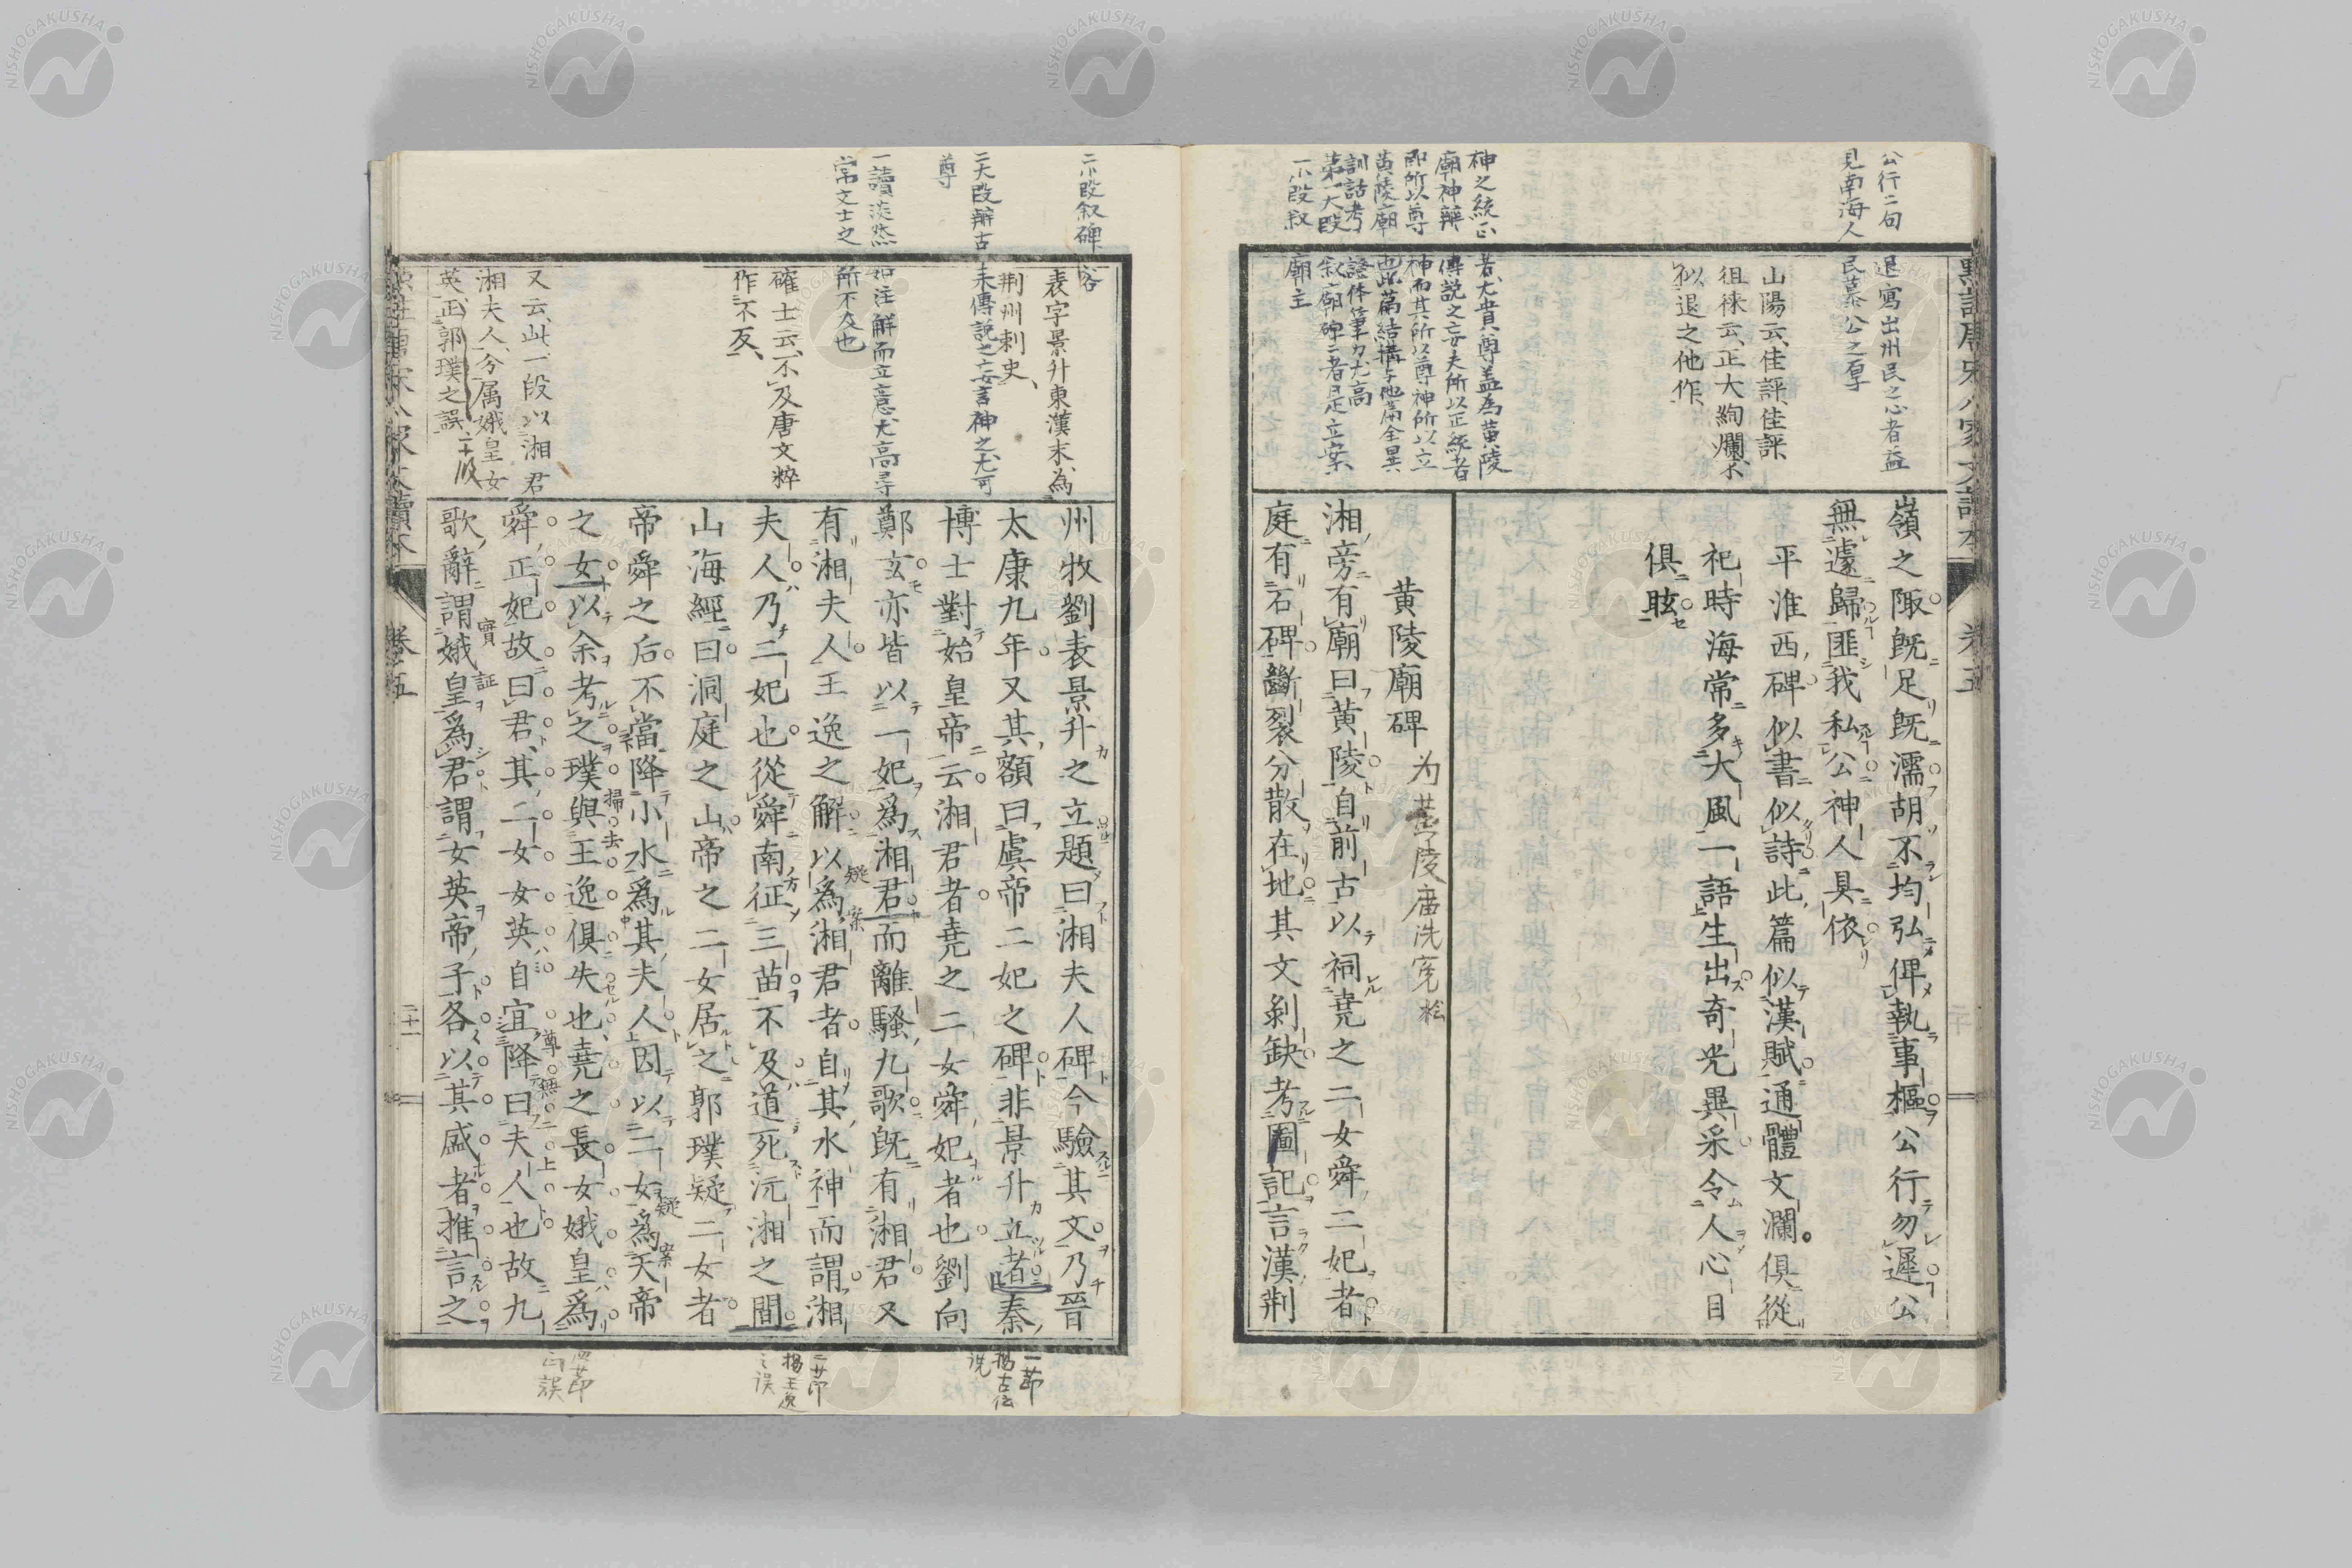 公行二句
退寫出州民之心者益
見南海人
民慕公之厚
山陽云、佳評、佳評
徂徠云、正大絢爛、不
似退之他作
神之統正
者、尤貴尊蓋為黄陵
廟神辨
傳説之妄夫所以正統者
即所以尊
神而其所以尊神所以立
黄陵廟
也此篇結構与他篇全異
訓詁考
證体筆力尤高
第一大段
叙廟碑二者是立案
一小段叙
廟主
嶺之陬既足既濡胡不均弘俾執事樞公行勿遲公
無遽歸匪我私公神人具依
平淮西碑似書似詩此篇似漢賦通體文瀾俱從
祀時海常多大風一語生出奇光異采令人心目
俱眩
黄陵廟碑
湘旁有廟曰黄陵自前古以祠堯之二女舜二妃者
庭有石碑斷裂分散在地其文剝缺考圖記言漢荆
二小段叙碑
表字景升東漢末、為
荆州刺史、
二大段辨古
来傳説之妄言神之尤可
尊
一讀淡然
如注解而立意尤高尋
常文士之
所不及也
確士云、不及唐文粹
作不反、
又云、此一段以湘君
湘夫人、分属娥皇女
英正郭璞之誤
州牧劉表景升之立題曰湘夫人碑今驗其文乃晉
太康九年又其額曰虞帝二妃之碑非景升立者秦
博士對始皇帝云湘君者堯之二女舜妃者也劉向
鄭玄亦皆以二妃爲湘君而離騷九歌既有湘君又
有湘夫人王逸之解以爲湘君者自其水神而謂湘
夫人乃二妃也從舜南征三苗不及道死沅湘之間
山海經曰洞庭之山帝之二女居之郭璞疑二女者
帝舜之后不當降小水爲其夫人因以二女爲天帝
之女以余考之璞與王逸俱失也堯之長女娥皇爲
舜正妃故曰君其二女女英自宜降曰夫人也故九
歌辭謂娥皇爲君謂女英帝子各以其盛者推言之
卷五
二十一